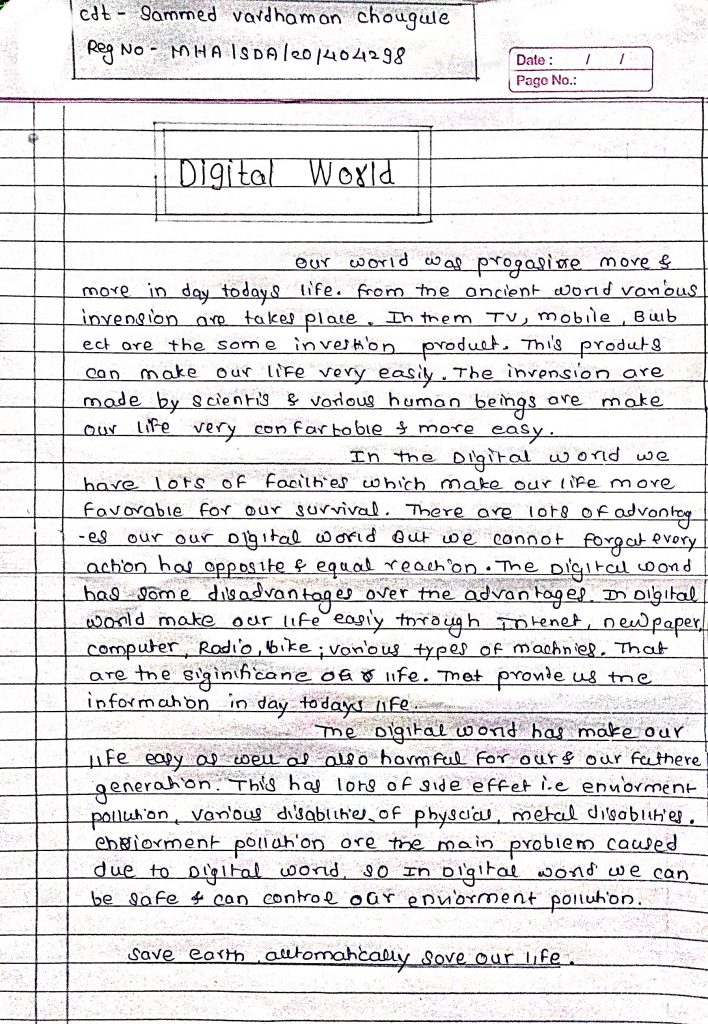 cdt - Sammed vardhaman chougule
Reg No - MHA/SDA/20/404298
Date : / /
Page No.:
Digital World
our world was progasive more &
more in day todays life. from the ancient world various
invension are takes place. In them TV, mobile, Bulb
ect are the some invention product. This produts
can make our life very easily. The invension are
made by scientis & various human beings are make
our life very confartoble & more easy.
In the Digital world we
have lots of facilties which make our life more
favorable for our survival. There are lots of advantag
-es our our Digital world But we cannot forgat every
action has opposite & equal reaction. The Digital world
has some disadvantages over the advantages. In Digital
world make our life easiy through Intenet, newpaper,
computer, Radio, bike ; various types of machnies. That
are the siginificane of life. That provie us the
information in day todays life.
The Digital world has make our
life easy as well as also harmful for our & our futhere
generation. This has lots of side effet i.e enviorment
pollution, various disablities of physcial, metal disablities.
enviorment pollution are the main problem caused
due to Digital world, so In Digital world we can
be safe & can control our enviorment pollution.
save earth automatically save our life.